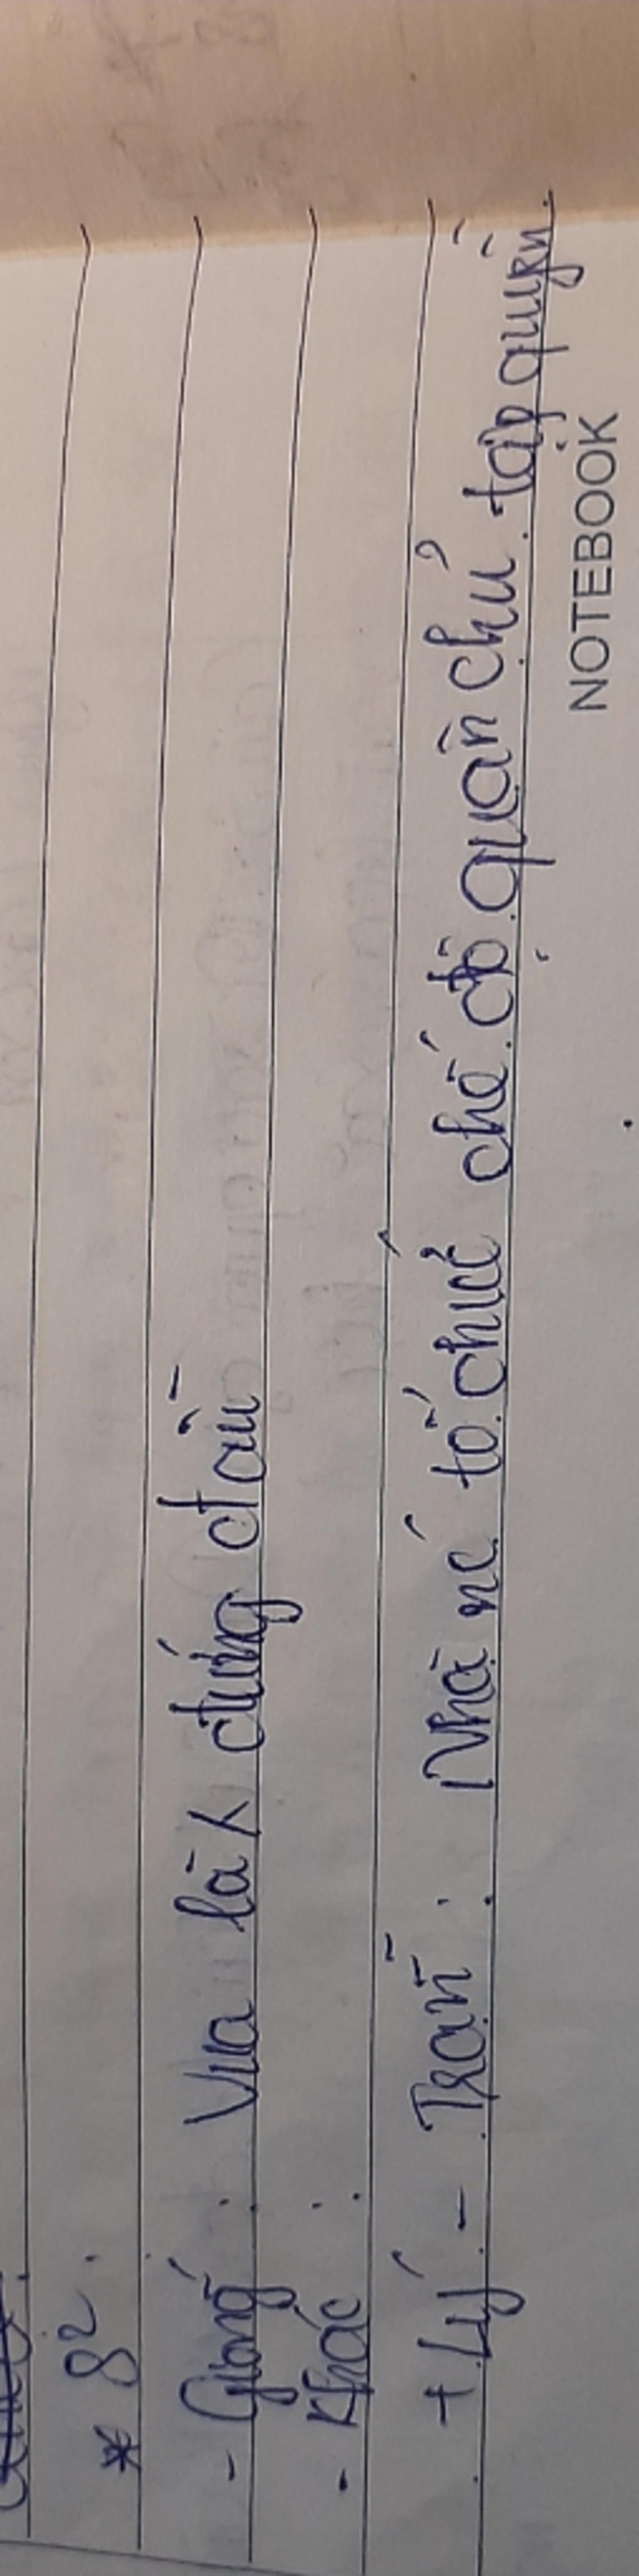 * 82.
- Giống : Vua là λ đứng đầu
- Khác :
+ Lý - Trần : Nhà nc tổ chức chế độ quân chủ tập quyền
NOTEBOOK